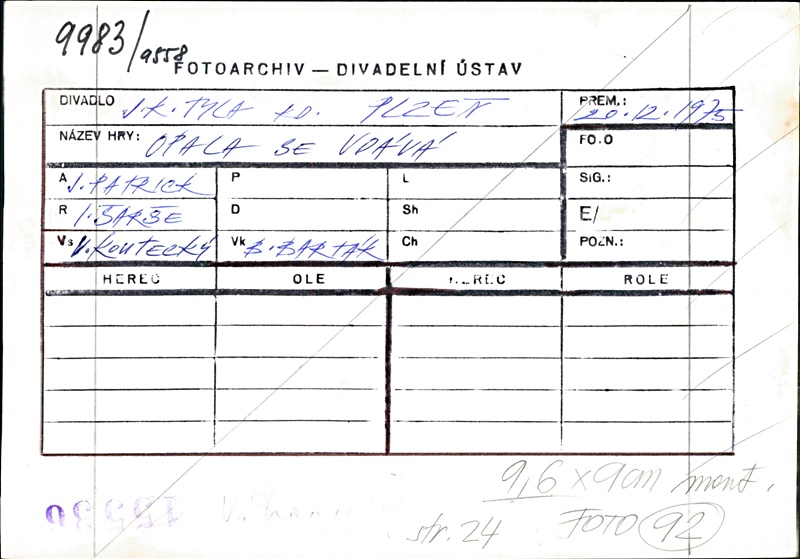 9983/9558
FOTOARCHIV — DIVADELNÍ ÚSTAV
DIVADLO J.K. TYLA KD. PLZEŇ PREM.: 20.12.1975
NÁZEV HRY: OPALA SE VDÁVÁ FO.O
A J. PATRICK P L SIG.:
R I. ŠARŠE D Sh E/
Vs V. KOUTECKÝ Vk B. BARTÁK Ch POZN.:
HEREC OLE HEREC ROLE
9,6 x 9 cm mont.
str. 24 FOTO 92